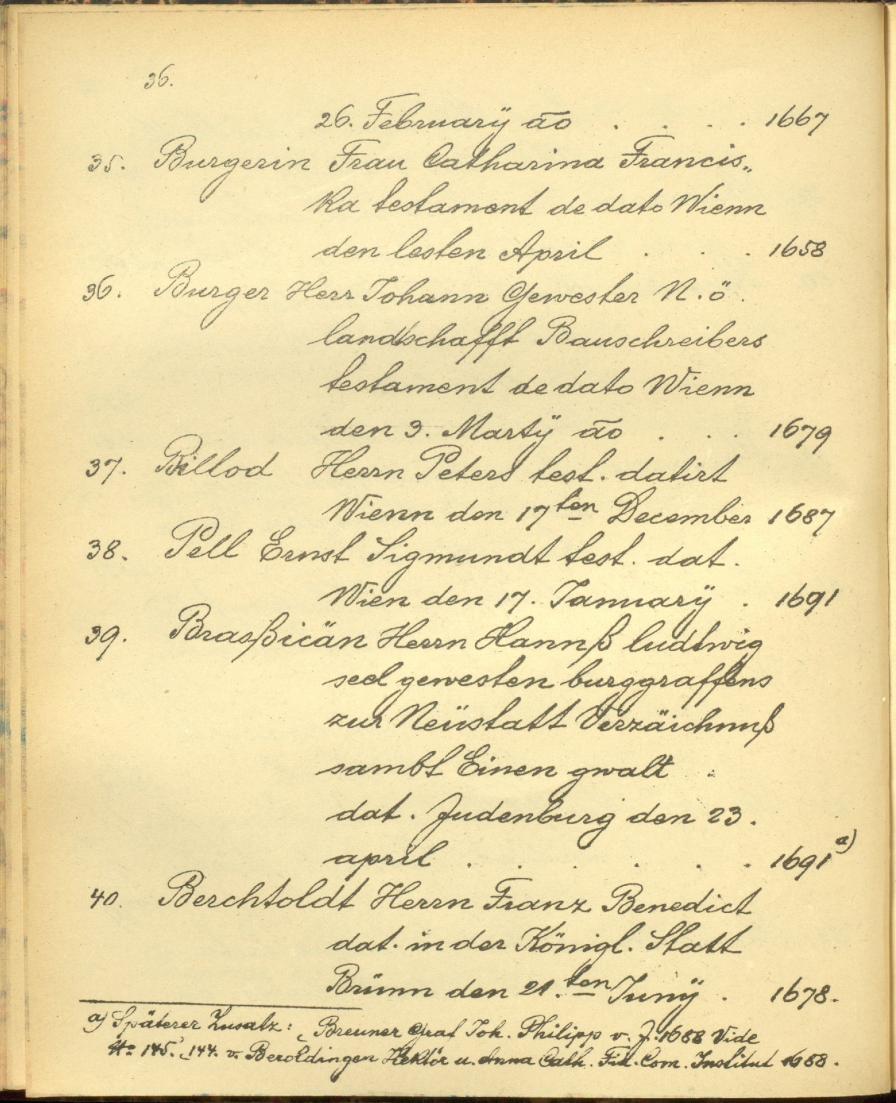 36.
26. Februarÿ ao . . . . 1667
35. Burgerin Frau Catharina Francis„
ka testament de dato Wienn
den lesten April . . . 1658
36. Burger Herr Johann Gewester N. ö.
landschafft Bauschreibers
testament de dato Wienn
den 3. Martÿ ao . . . 1679
37. Billod Herrn Peters test. datirt
Wienn den 17ten December 1687
38. Pell Ernst Sigmundt test. dat.
Wien den 17. Januarÿ . 1691
39. Braßicän Herrn Hannß ludtwig
seel gewesten burggraffens
zur Neüstatt Verzäichnuß
sambt Einen gwalt
dat. Judenburg den 23.
april . . . . . . 1691 a)
40. Berchtoldt Herrn Franz Benedict
dat. in der Königl. Statt
Brünn den 21.ten Junÿ . 1678.
a) Späterer Zusatz: Breuner Graf Joh. Philipp v. J. 1688 Vide
No 145. 144. v. Beroldingen Hektor u. Anna Cath. Fid. Com. Institut 1688.